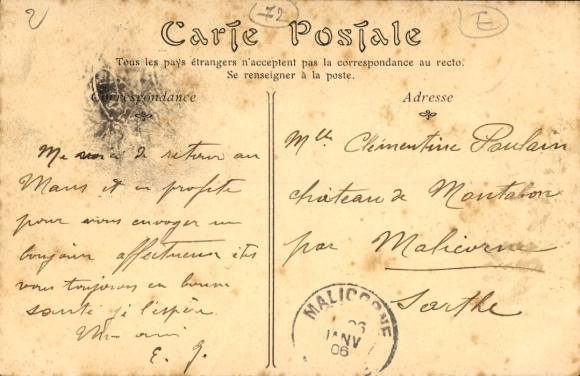 72
E
Carte Postale
Tous les pays étrangers n'acceptent pas la correspondance au recto.
Se renseigner à la poste.
Correspondance
Me voici de retour au
Mans et en profite
pour vous envoyer un
bonjour affectueux êtes
vous toujours en bonne
santé je l'espère.
ami
E. J.
Adresse
Mlle Clémentine Poulain
château de Montabon
par Malicorne
Sarthe
MALICORNE
26
JANV
06